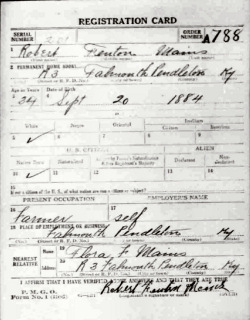 REGISTRATION CARD
SERIAL NUMBER
ORDER NUMBER A788
1 Robert Fenton Mains
2 PERMANENT HOME ADDRESS
R3 Falmouth Pendleton Ky
Age in Years
Date of Birth
34 Sept 20 1884
RACE
White
Negro
Oriental
Indian
U. S. CITIZEN
ALIEN
Native Born
Naturalized
Declarant
If not a citizen of the U. S., of what nation are you a citizen or subject?
PRESENT OCCUPATION
EMPLOYER'S NAME
Farmer self
PLACE OF EMPLOYMENT OR BUSINESS
Falmouth Pendleton Ky
NEAREST RELATIVE
Name
Address
Flora F Mains
R3 Falmouth Pendleton Ky
I AFFIRM THAT I HAVE VERIFIED ABOVE ANSWERS AND THAT THEY ARE TRUE
P. M. G. O.
Form No. 1
Robert Fenton Mains